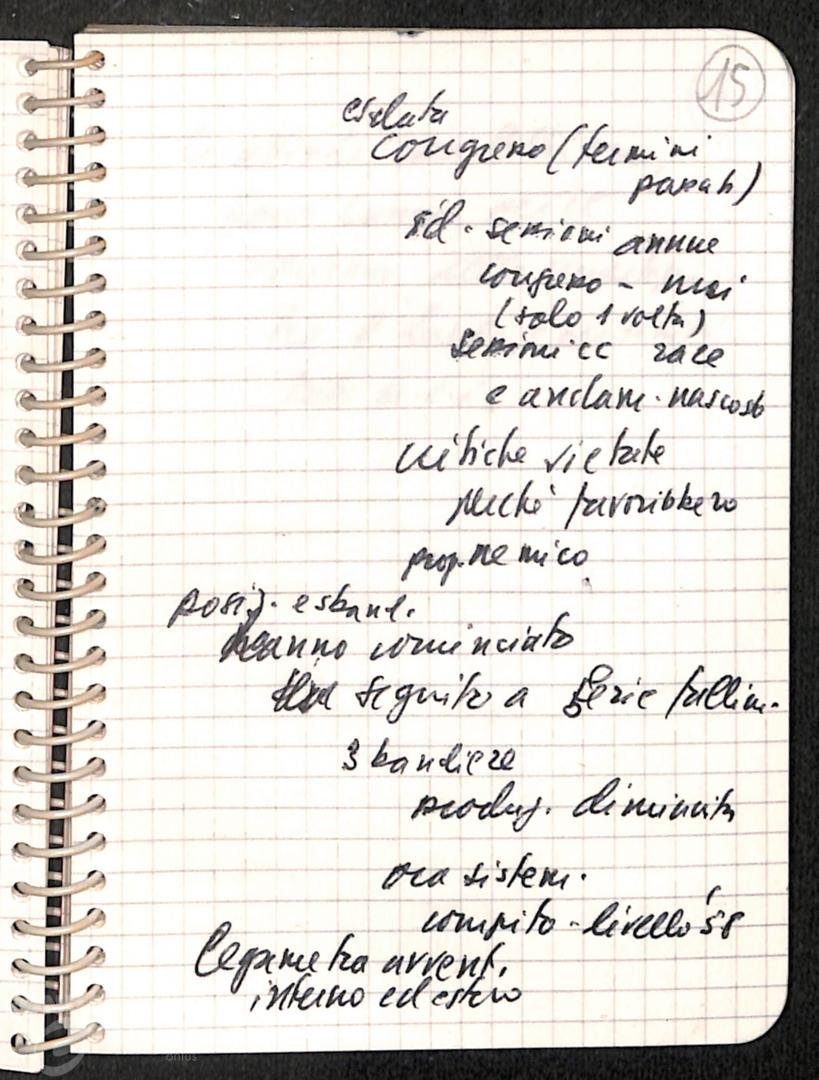 15
Congresso (termini
passati)
id. sessioni annue
congresso - mai
(solo 1 volta)
sessioni CC rare
e andam. nascosto
critiche vietate
perché favorirebbero
prop. nemico
posiz. e sband.
hanno cominciato
seguito a serie fallim.
3 bandiere
produz. diminuita
ora sistem.
compito - livello '58
legame tra avvent.
interno ed estero
onlus